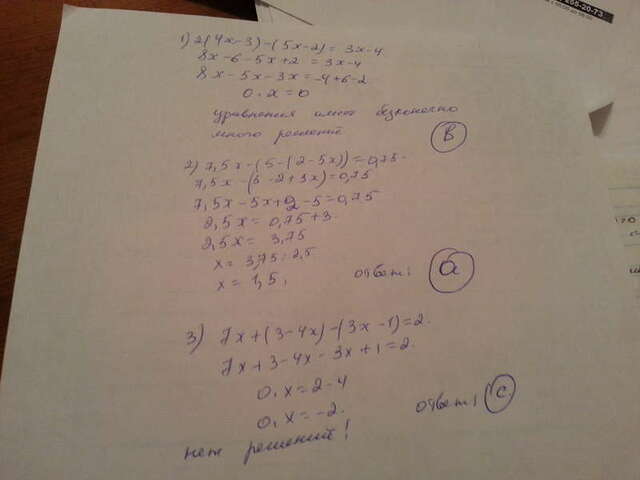 255-20-73
1) 2(4x-3)-(5x-2)= 3x-4
8x-6-5x+2 = 3x-4
8x-5x-3x=-4+6-2
0·x=0
уравнения имеет безконечно
много решений
В
2) 7,5x-(5-(2-5x))=0,75
7,5x-(5-2+5x)=0,75
7,5x-5x+2-5=0,75
2,5x= 0,75+3
2,5x= 3,75
x= 3,75:2,5
x= 1,5; ответ: а
3) 7x+(3-4x)-(3x-1)=2.
7x+3-4x-3x+1=2.
0·x=2-4
0·x=-2. ответ: С
нет решений!